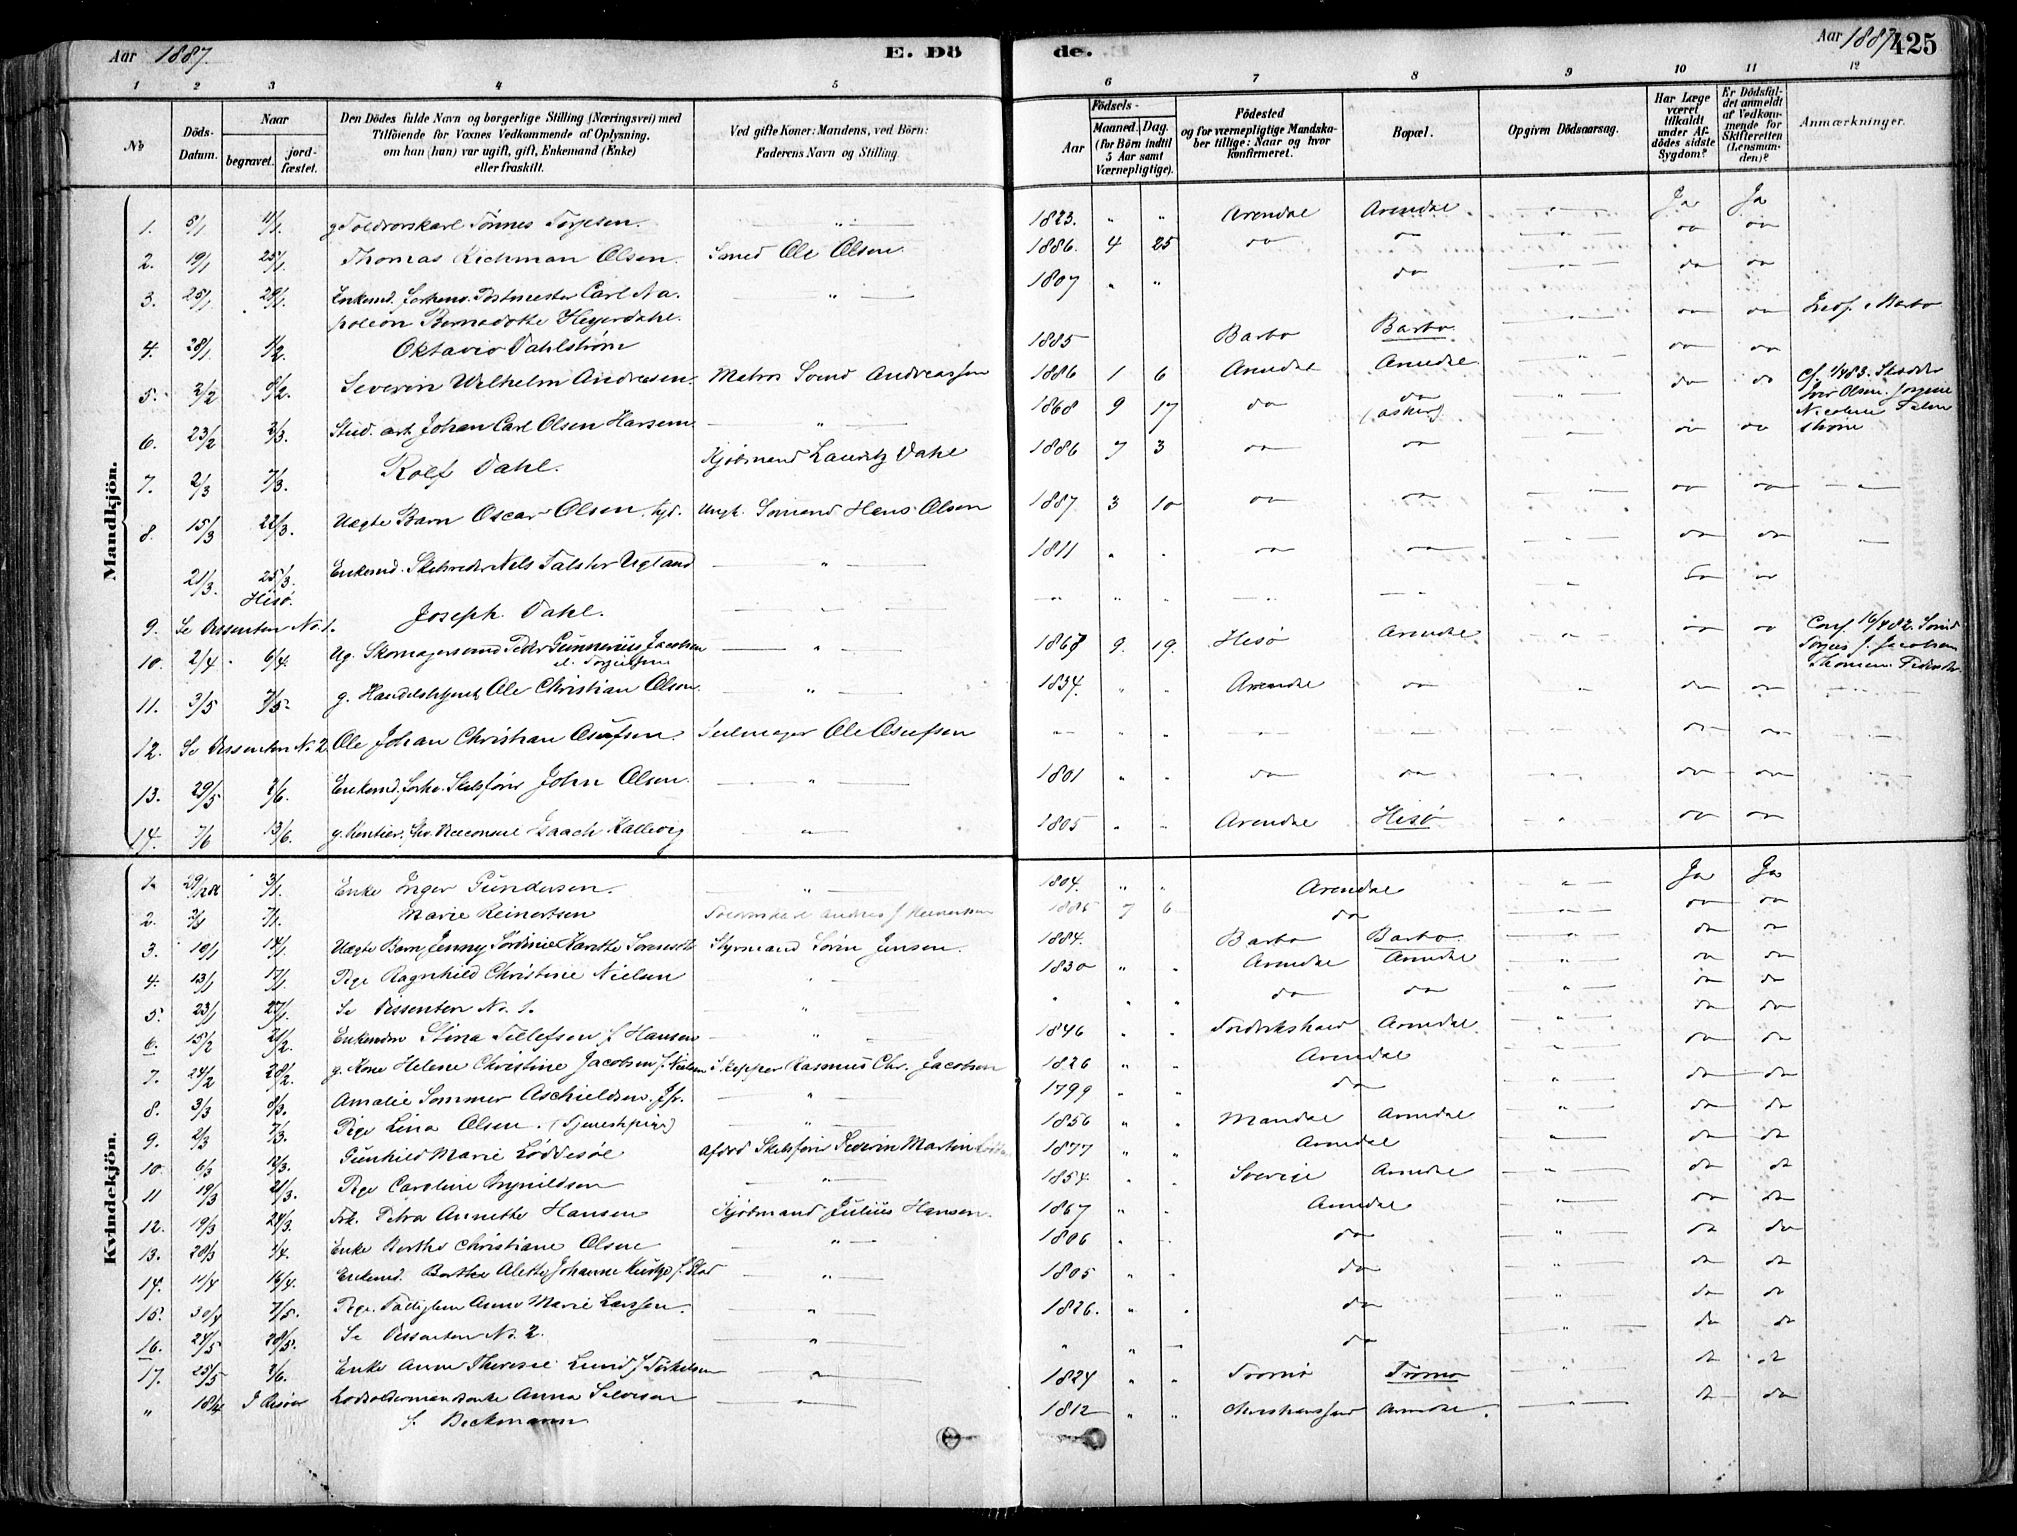 Aar 1887. E. Dö
de. Aar 1887. 425
1 2 3 4 5 6 7 8 9 10 11 12
No
Döds-Datum.
Naar
begravet.
jord-fæstet.
Den Dödes fulde Navn og borgerlige Stilling (Næringsvei) med
Tilföiende for Voxnes Vedkommende af Oplysning,
om han (hun) var ugift, gift, Enkemand (Enke)
eller fraskilt.
Ved gifte Koner: Mandens, ved Börn:
Faderens Navn og Stilling.
Födsels-
Aar
Maaned. Dag.
(for Börn indtil
5 Aar samt
Værnepligtige).
Födested
og for værnepligtige Mandska-
ber tillige: Naar og hvor
konfirmeret.
Bopæl.
Opgiven Dödsaarsag.
Har Læge
været
tilkaldt
under Af-
dödes sidste
Sygdom?
Er Dödsfal-
det anmeldt
af Vedkom-
mende for
Skifteretten
(Lensman-
den)?
Anmærkninger.
Mandkjön.
1. 5/1 11/1. g. Toldrorskarl Tönnes Torjesen. " 1823. " " Arendal Arendal " Ja Ja
2. 19/1 25/1. Thomas Richman Olsen. Smed Ole Olsen 1886. 4 25 do do " do do
3. 25/1 29/1. Enkemd. Postmester Carl Na-
poleon Bernadotte Heyerdahl. " 1807 " " do " do do
4. 28/1 1/2. Oktavio Dahlström 1885 Barbo Barbo. " do do Barbo
5. 2/2 8/2. Severin Wilhelm Andreasen. Matros Svend Andreassen 1886 1 6 Arendal Arendal " do do
6. 23/2 2/3. Stud. art. Johan Carl Olsen Harsem " 1868 9 17 do do (Asker) do do
7. 2/3 7/3. Rolf Dahl. Kjöbmand Lauritz Dahl 1886 7 3 do do " do do
8. 15/3 22/3. Uægte Barn Oscar Olsen Ungk. Sömand Hans Olsen 1887 3 10 do do " do do
21/3. 25/3. Hisö. Enkemd. Nels Falster Ugland " 1811 " " do do do do
9. Se Dissenten No. 1. Joseph Dahl. "
10. 2/4 6/4. Ug. Skomagersvend Peder Gunnerius Jacobsen " 1867 9. 19. Hisö Arendal " do do Conf.
11. 3/5 7/5. g. Ole Christian Olsen. " 1834. " " Arendal do " do do
12. Se Dissenten No 2 Ole Johan Christian Osufsen. Seilmager Ole Osufsen
13. 29/5 2/6. Enkemd. forhv. Skibsförer John Olsen. " 1801 " " do do " do do
14. 7/6 13/6. g. Rentier, Viceconsul Isaach Kallevig " 1805 " " Arendal Hisö " do do
Kvindekjön.
1. 29/12 86 3/1. Enke Inger Gundersen. " 1804. " " Arendal " Ja Ja
2. 3/1 7/1. Marie Reinertsen 1885 7 6 do " do do
3. 10/1 14/1. Uægte Barn Jenny Styrmand Sörin Jensen. 1884. Barbo Barbo. " do do
4. 13/1 17/1. Pige Ragnhild Christine Nielsen " 1830 " " Arendal Arendal " do do
5. 23/1 27/1. Se Dissenten No. 1. " " " " do do " do do
6. 15/2 21/2. Stina Tellefsen f. Hansen " 1846 " " Fredrikshald Arendal. " do do
7. 24/2 28/2. g. Kone Helene Christine Jacobsen f. Nielsen Skipper Rasmus Chr. Jacobsen 1826 " " Arendal do do
8. 3/3 8/3. Amalie Sommer Aschieldsen. Jfr. " 1799 " " do " do do
9. 2/3 7/3. Pige Lina Olsen. (Tjenestepige) " 1856 " " Mandal Arendal " do do
10. 6/3 12/3. Gunhild Marie Löddesöl Afdöd Skibsförer Pederin Martin 1877 " " Arendal " do do
11 19/3 21/3. Pige Caroline Brynildsen " 1854. " " Sverige Arendal " do do
12. 19/3 24/3. Frk. Petra Annette Hansen Kjöbmand Julius Hansen. 1867 " " Arendal " do do
13. 28/3 1/4. Enke Berthe Christiane Olsen " 1806 " " do " do do
14. 11/4 16/4. Enkemd. Berthe Alette Johanne " 1805 " " do " do do
15. 30/4 7/5. Pige. Anne Marie Larsen. " 1826. " " do " do do
16. 24/5 28/5. Se Dissenten No. 2. " " " " do " do do
17. 25/5 2/6. Enke Anne Therese Lund f. Terkelsen " 1824 " " Tromö Tromö " do do
" 18/4 I Risöer Anna
f. Beckmann " 1812 " " Christianssand Arendal. do do